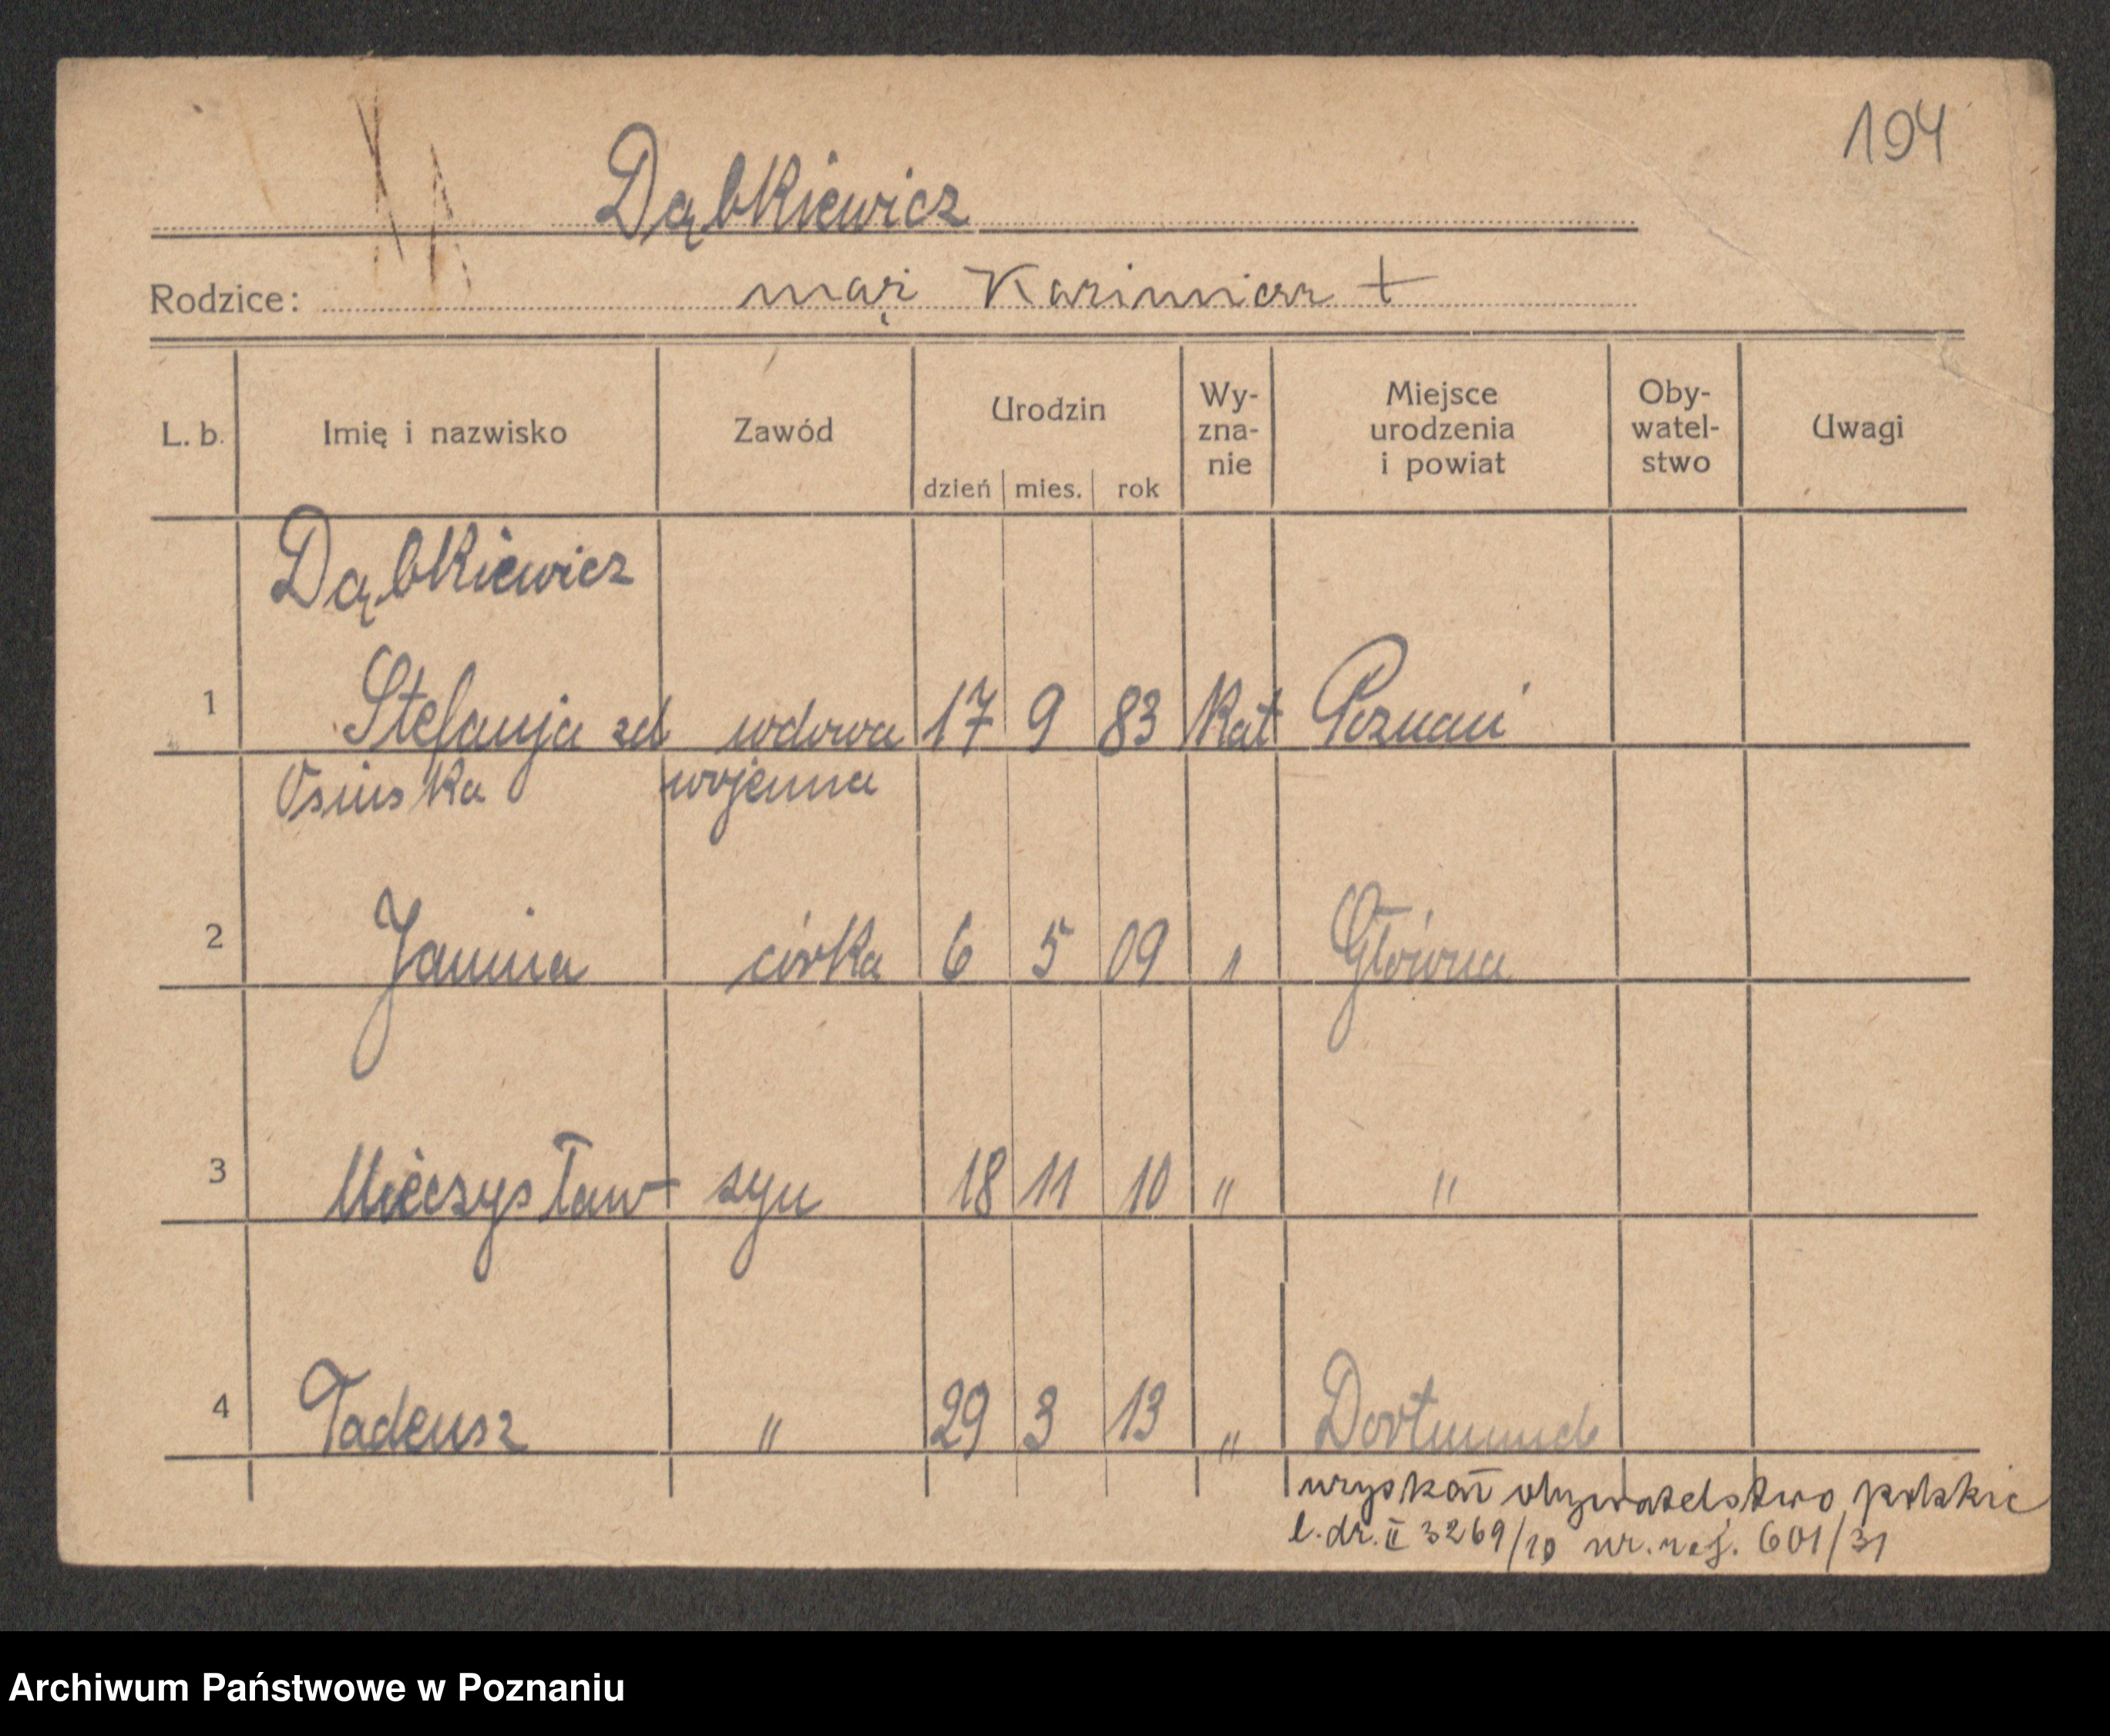 194
Dąbkiewicz
Rodzice: mąż Kazimierz +
L. b. Imię i nazwisko Zawód Urodzin dzień mies. rok Wy-zna-nie Miejsce urodzenia i powiat Oby-watel-stwo Uwagi
Dąbkiewicz
1 Stefanja zd wdowa 17 9 83 Kat Poznań
Osińska wojenna
2 Janina córka 6 5 09 " Główna
3 Mieczysław syn 18 11 10 " "
4 Tadeusz " 29 3 13 " Dortmund
uzyskał obywatelstwo polskie
l. dz. II 3269/10 nr. rej. 601/31
Archiwum Państwowe w Poznaniu